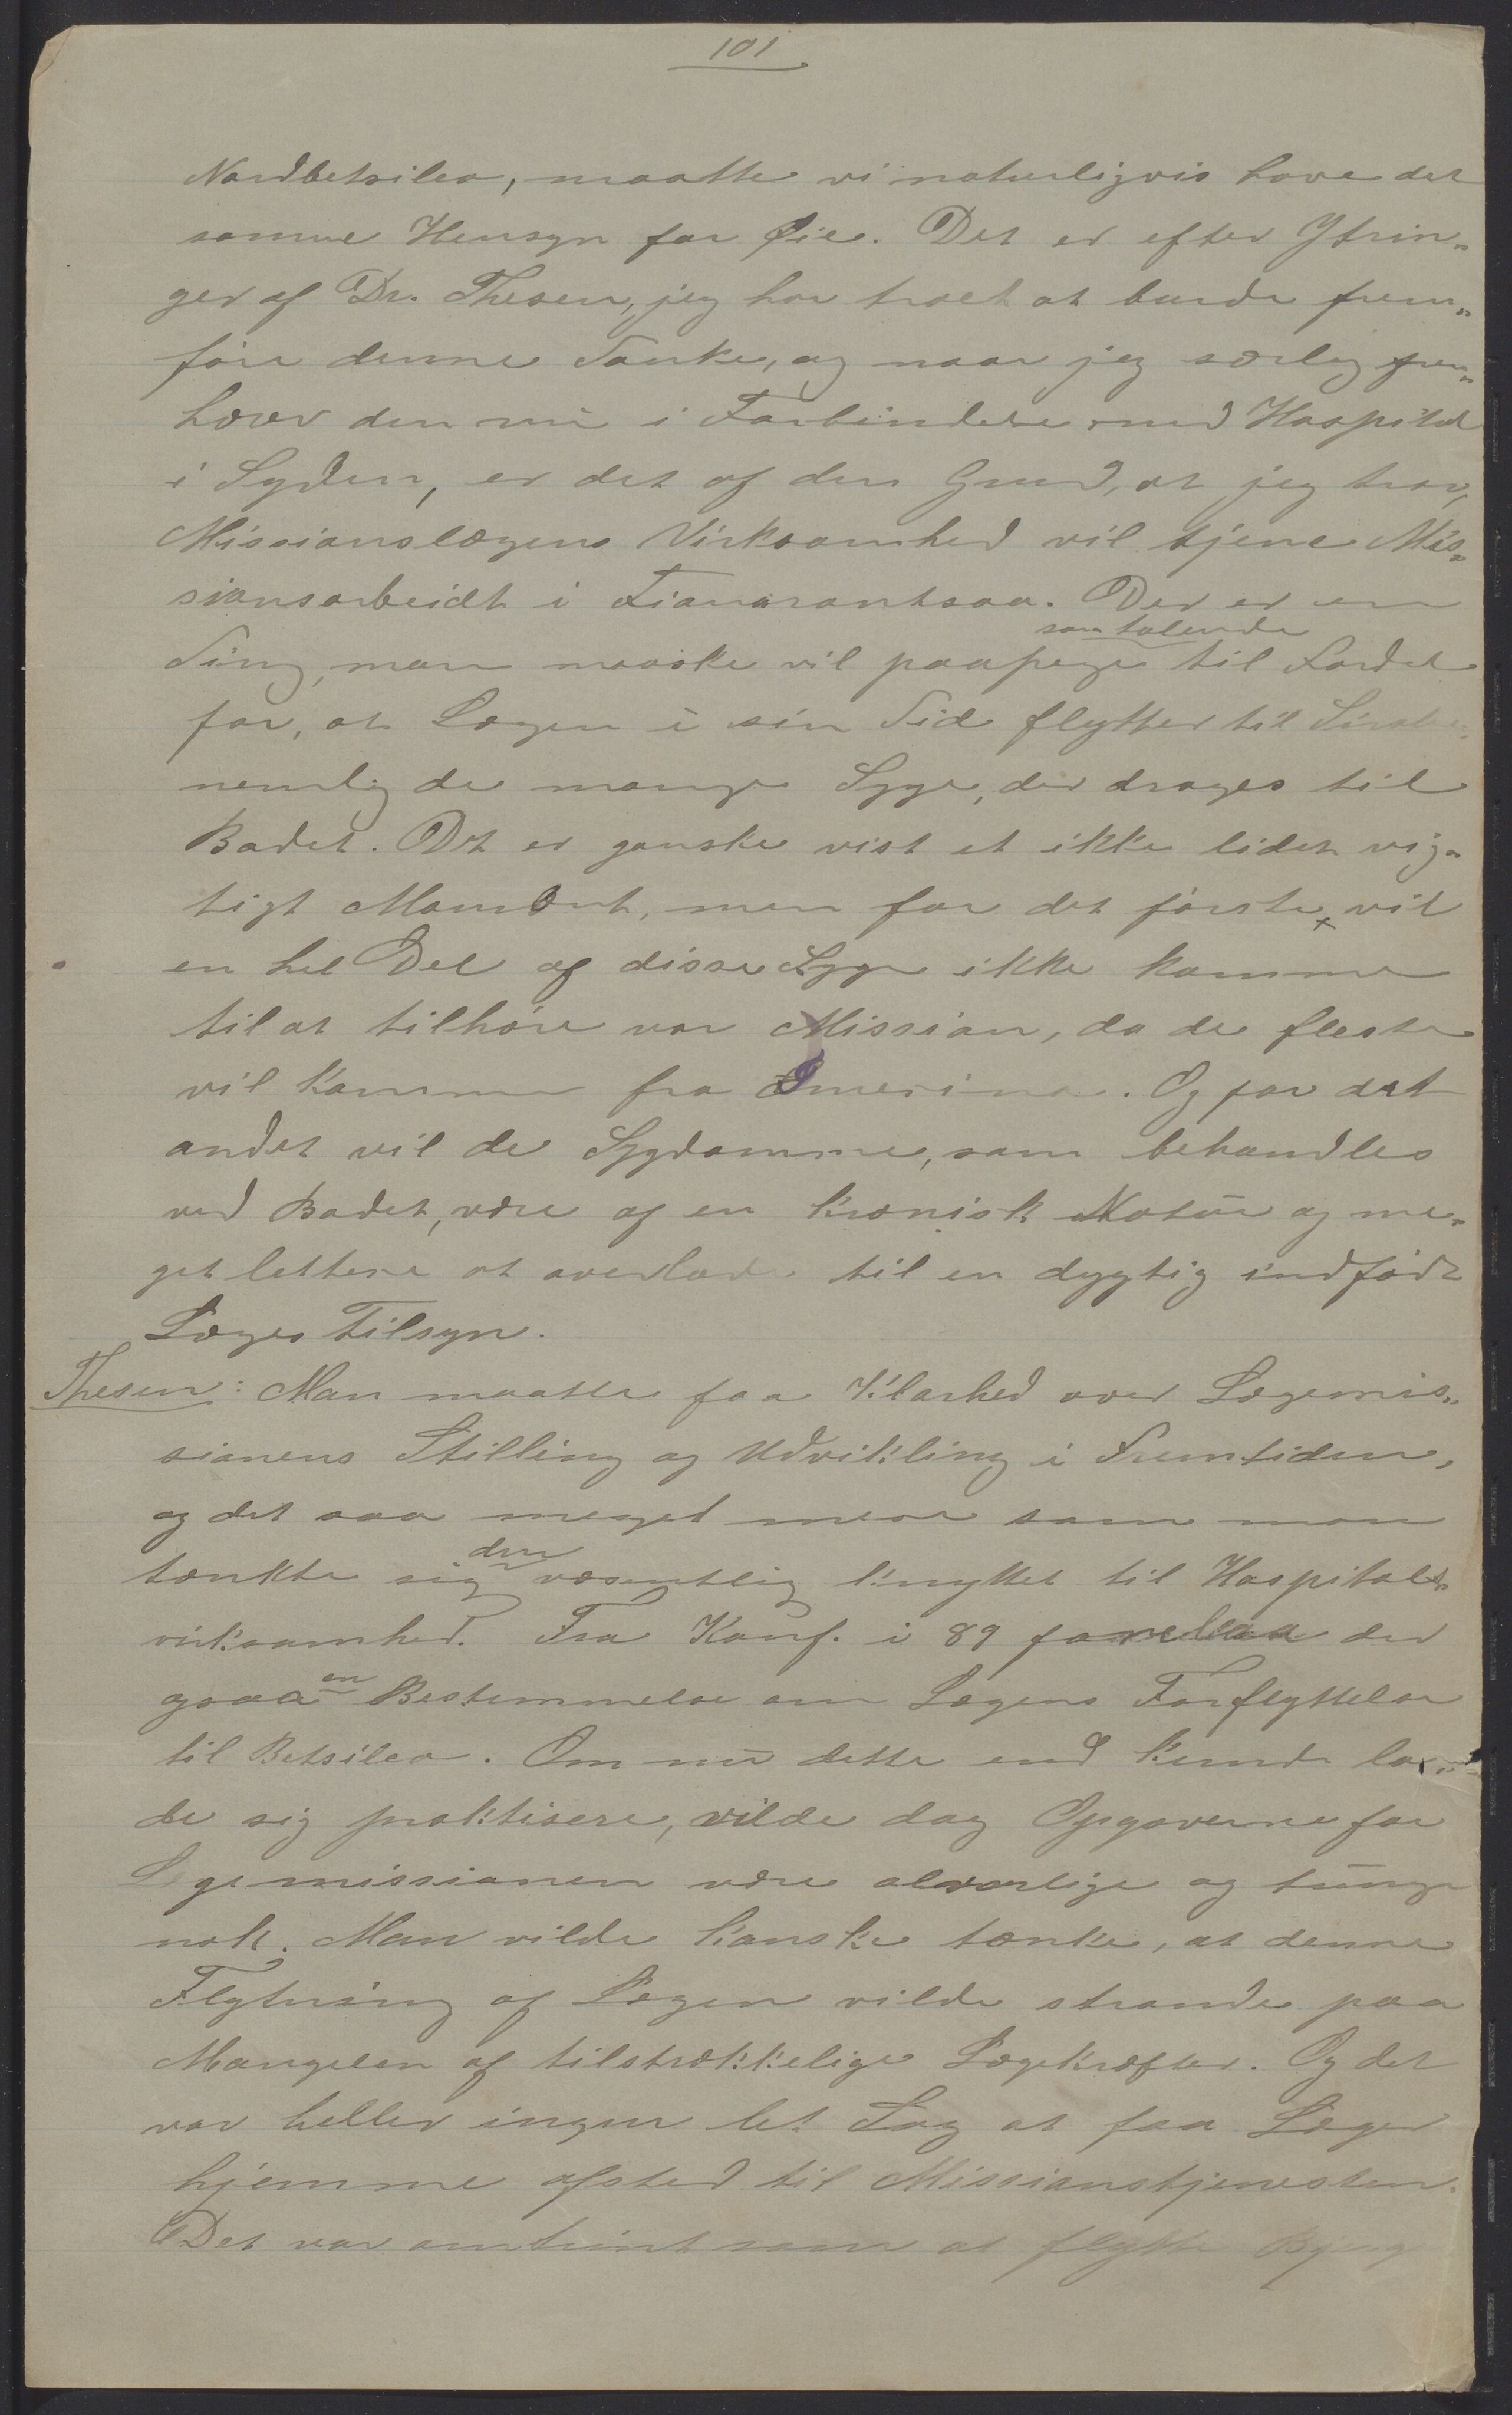 101
Nordbetsileo, maatte vi naturligvis have det
samme Hensyn for Øie. Det er efter Ytrin„
ger af Dr. Thesen, jeg har troet at burde frem„
føre denne Tanke, og naar jeg særlig frem„
hæver den nu i Forbindelse med Hospital
i Syden, er det af den Grund, at jeg tror,
Missionslægens Virksomhed vil tjene Mis„
sionsarbeidt i Fianarantsoa. Der er en
som talende
Ting, man maaske vil paapege til Fordel
for, at Lægen i sin Tid flytter til Sirabe,
nemlig de mange Syge, der drages til
Badet. Det er ganske vist et ikke lidet vig„
tigt Moment, men for det første vil
en hel Del af disse Syge ikke komme
til at tilhøre vor Mission, da de fleste
vil komme fra Imerina. Og for det
andet vil de Sygdomme, som behandles
ved Badet, være af en kronisk Natur og me„
get lettere at overlade til en dygtig indfødt
Læges Tilsyn.
Thesen: Man maatte faa Klarhed over Lægemis„
sionens Stilling og Udvikling i Fremtiden,
og det saa meget mere som man
den
tænkte sig væsentlig knyttet til Hospitals„
virksomhed. Fra Konf. i 89 forelaa der
en
ogsaa Bestemmelse om Lægens Forflyttelse
til Betsileo. Om nu dette end kunde la„
de sig praktisere, vilde dog Opgaverne for
Lægemissionen være alvorlige og tunge
nok. Man vilde kanske tænke, at denne
Flytning af Lægen vilde strande paa
Mangelen af tilstrækkelige Lægekræfter. Og det
var heller ingen let Sag at faa Læger
hjemme afsted til Missionstjenesten.
Det var omtrent som at flytte Bjerge